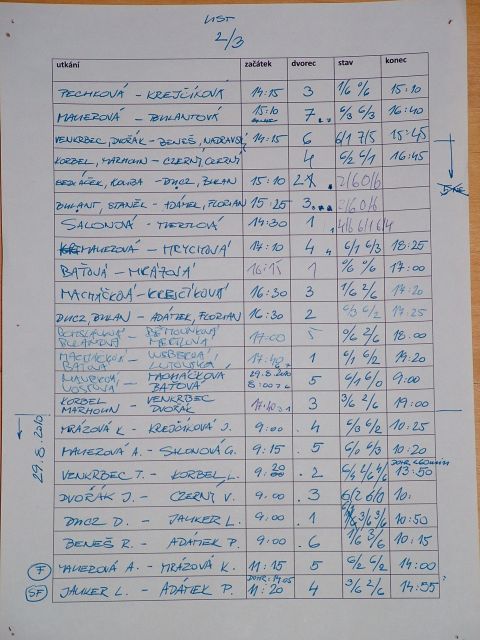 LIST
2/3
utkání začátek dvorec stav konec
PECHKOVÁ - KREJČÍKOVÁ 14:15 3 1/6 0/6 15:10
MAUEROVÁ - BULANTOVÁ 15:10 7 6/3 6/3 16:40
VENKRBEC, DVOŘÁK - BENEŠ, NADRAVSKÝ 14:15 6 6/1 7/5 15:45
KORBEL, MARHOUN - ČERNÝ, ČERNÝ 4 6/2 6/1 16:45
SEDLÁČEK, KOUBA - DUCZ, BULAN 15:10 2/6 0/6
BULANT, STANĚK - ADÁMEK, FLORIAN 15:25 3 2/6 0/6
SALONOVÁ - 14:30 1 4/6 6/1 6/4
MAUEROVÁ - HRYCHOVÁ 17:10 4 6/1 6/3 18:25
BAŤOVÁ - MRÁZOVÁ 16:15 1 0/6 0/6 17:00
MACHÁČKOVÁ - KREJČÍKOVÁ 16:30 3 1/6 2/6 17:20
DUCZ, BULAN - ADÁMEK, FLORIAN 16:30 2 6/3 6/2 17:25
17:00 5 0/6 2/6 18:00
MACHÁČKOVÁ
BAŤOVÁ 17:40 1 6/1 6/2 19:20
MACHÁČKOVÁ 29.8.2010
BAŤOVÁ 5 6/1 6/0 9:00
KORBEL VENKRBEC
MARHOUN - DVOŘÁK 17:40 3 3/6 2/6 19:00
29.8.2010
MRÁZOVÁ K. - KREJČÍKOVÁ J. 9:00 4 6/3 6/2 10:25
MAUEROVÁ A. - SALONOVÁ G. 9:15 5 6/0 6/3 10:20
VENKRBEC T. - KORBEL L. 9:20 2 6/4 4/6 4/6 13:50
DVOŘÁK J. - ČERNÝ V. 9:00 3 6/2 6/0 10:
DUCZ D. - JAUKER L. 9:00 1 3/6 3/6 10:50
BENEŠ R. - ADÁMEK P. 9:00 6 1/6 3/6 10:15
F MAUEROVÁ A. - MRÁZOVÁ K. 11:15 5 6/2 6/2 14:00
SF JAUKER L. - ADÁMEK P. DOHR. 14:05 11:20 4 3/6 2/6 14:55 ?